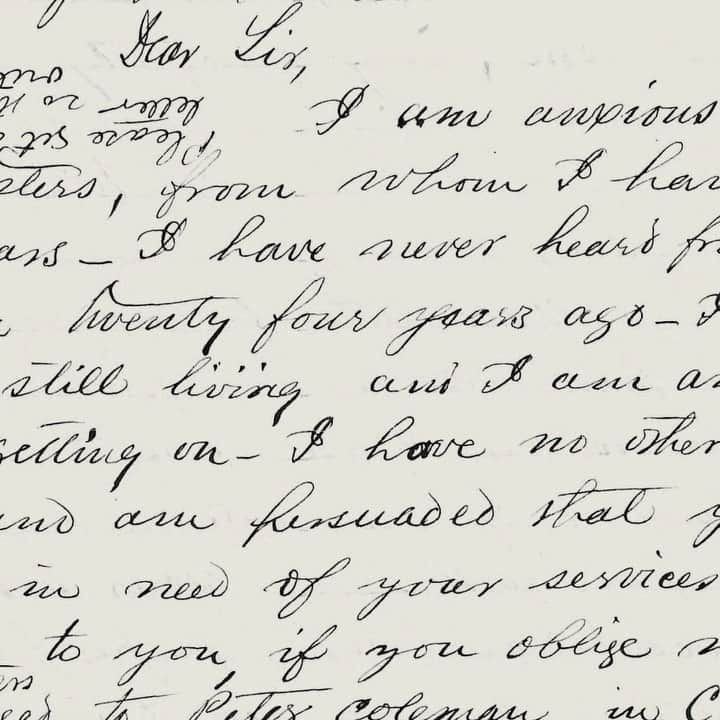 Dear Sir,
Please set
letter
I am anxious
sters, from whom I hav
ars - I have never heard fr
twenty four years ago - I
still living and I am an
getting on - I have no other
and am persuaded that y
in need of your services
to you, if you oblige
to Peter Coleman in C